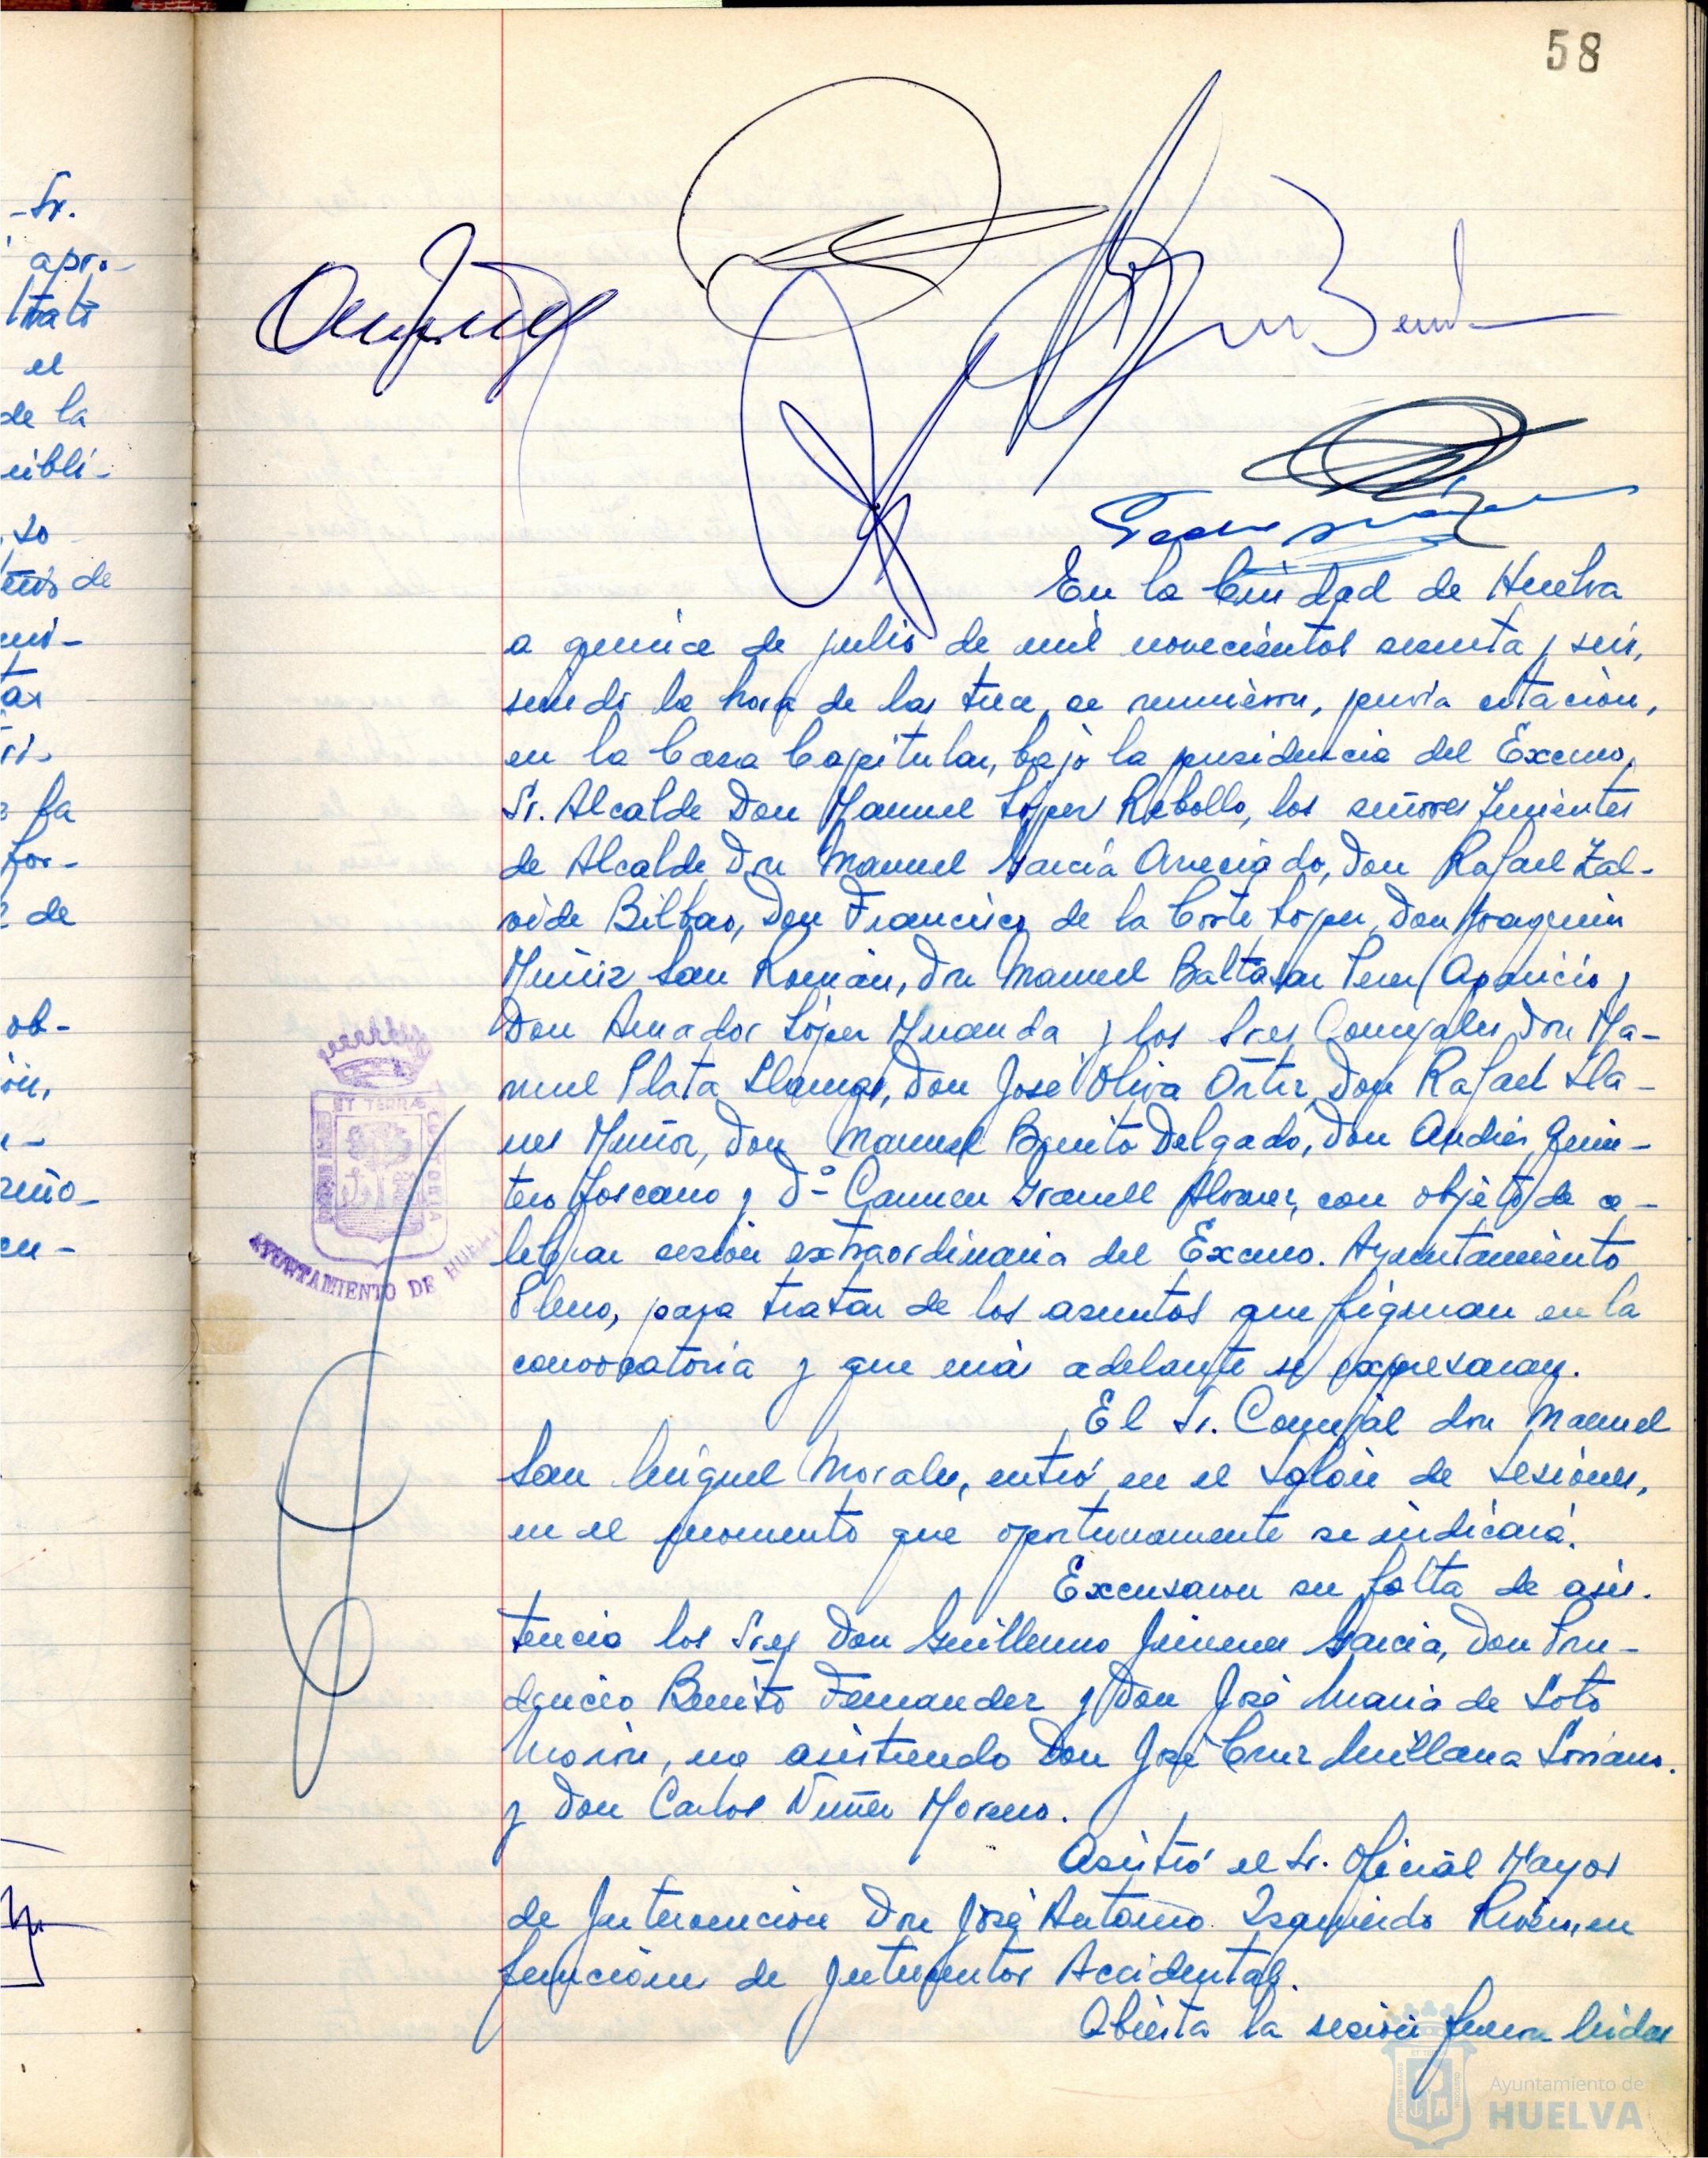 58
-Sr.
apro-
ltati
el
de la
úbli-
so
de
ar
la
for-
de
ob-
ón,
En la Ciudad de Huelva
a quince de julio de mil novecientos sesenta y seis,
siendo la hora de las trece, se reunieron, previa citación,
en la Casa Capitular, bajo la presidencia del Excmo.
Sr. Alcalde Don Manuel López Rebollo, los señores Tenientes
de Alcalde Don Manuel García Arreciado, Don Rafael Zal-
vide Bilbao, Don Francisco de la Corte López, Don Joaquín
Muñiz San Román, Don Manuel Baltasar Perez Aparicio y
Don Amador López Miranda y los Sres Concejales Don Ma-
nuel Plata Llamas, Don José Oliva Ortiz, Don Rafael Lla-
nes Muñoz, Don Manuel Benito Delgado, Don Andrés Quin-
tero Toscano y Dª Carmen Granell Alvarez, con objeto de ce-
lebrar sesión extraordinaria del Excmo. Ayuntamiento
Pleno, para tratar de los asuntos que figuran en la
convocatoria y que más adelante se expresaran.
El Sr. Concejal don Manuel
San Miguel Morales, entró en el salón de sesiones,
en el momento que oportunamente se indicará.
Excusaron su falta de asis-
tencia los Sres Don Guillermo Jimenez García, Don Pru-
dencio Benito Fernandez y Don José María de Soto
Morón, no asistiendo Don José Cruz Millana Soriano
y Don Carlos Núñez Moreno.
Asistió el Sr. Oficial Mayor
de Intervención Don José Antonio Izquierdo en
funciones de Interventor Accidental.
Abierta la sesión fueron leidas
ET TERRÆ
CUSTODIA
AYUNTAMIENTO DE HUELVA
Ayuntamiento de
HUELVA